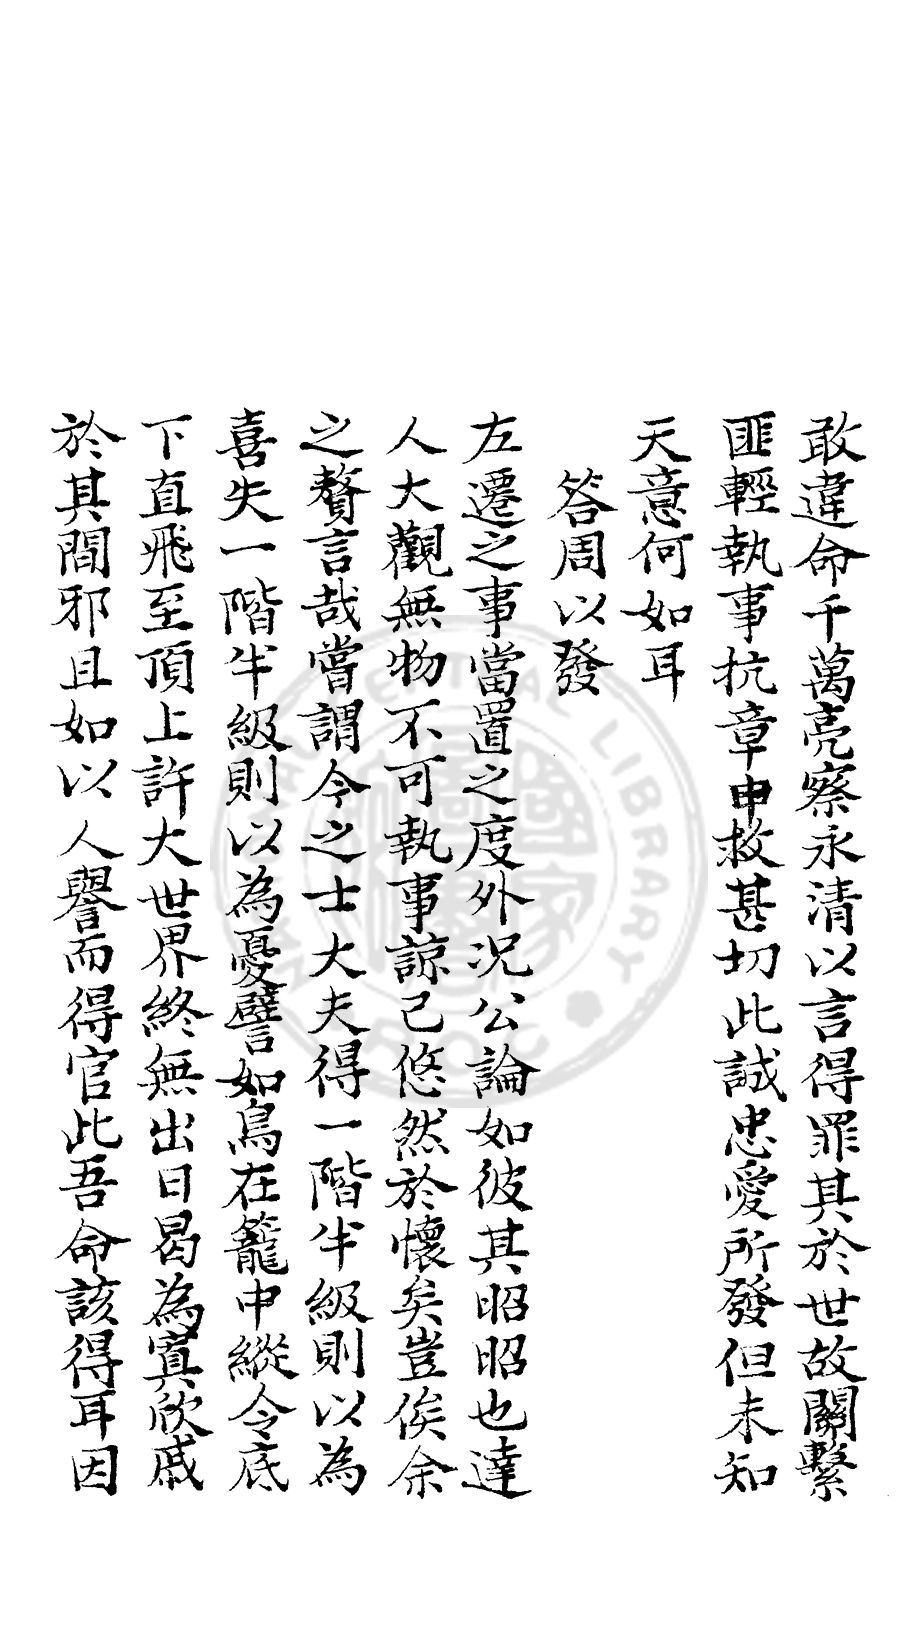 敢違命千萬亮察永清以言得罪其於世故關繫
匪輕執事抗章申救甚切此誠忠愛所發但未知
天意何如耳
答周以發
左遷之事當置之度外况公論如彼其昭昭也達
人大觀無物不可執事諒已悠然於懷矣豈俟余
之贅言哉嘗謂今之士大夫得一階半級則以為
喜失一階半級則以為憂譬如鳥在籠中縱令底
下直飛至頂上許大世界終無出日曷為寘欣戚
於其間邪且如以人譽而得官此吾命該得耳因